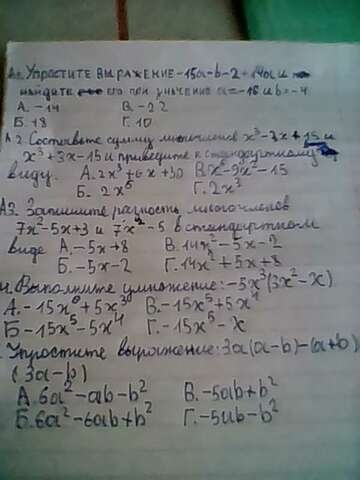 А1. Упростите выражение -15a-b-2+14a и
найдите его при значение a=-16 и b=-4
А. -14 В. -22
Б. 18 Г. 10
А2. Составьте сумму многочленов x³-3x+15 и
x³+3x-15 и приведите к стандартному
виду. А. 2x³+6x+30 В. x⁶-9x²-15
Б. 2x⁶ Г. 2x³
А3. Запишите разность многочленов
7x²-5x+3 и 7x²-5 в стандартном
виде А. -5x+8 В. 14x²-5x-2
Б. -5x-2 Г. 14x²+5x+8
4. Выполните умножение: -5x³(3x²-x)
А. -15x⁶+5x³ В. -15x⁵+5x⁴
Б -15x⁵-5x⁴ Г. -15x⁵-x
. Упростите выражение: 3a(a-b)-(a+b)
(3a-b)
А. 6a²-ab-b² В. -5ab+b²
Б. 6a²-6ab+b² Г. -5ab-b²